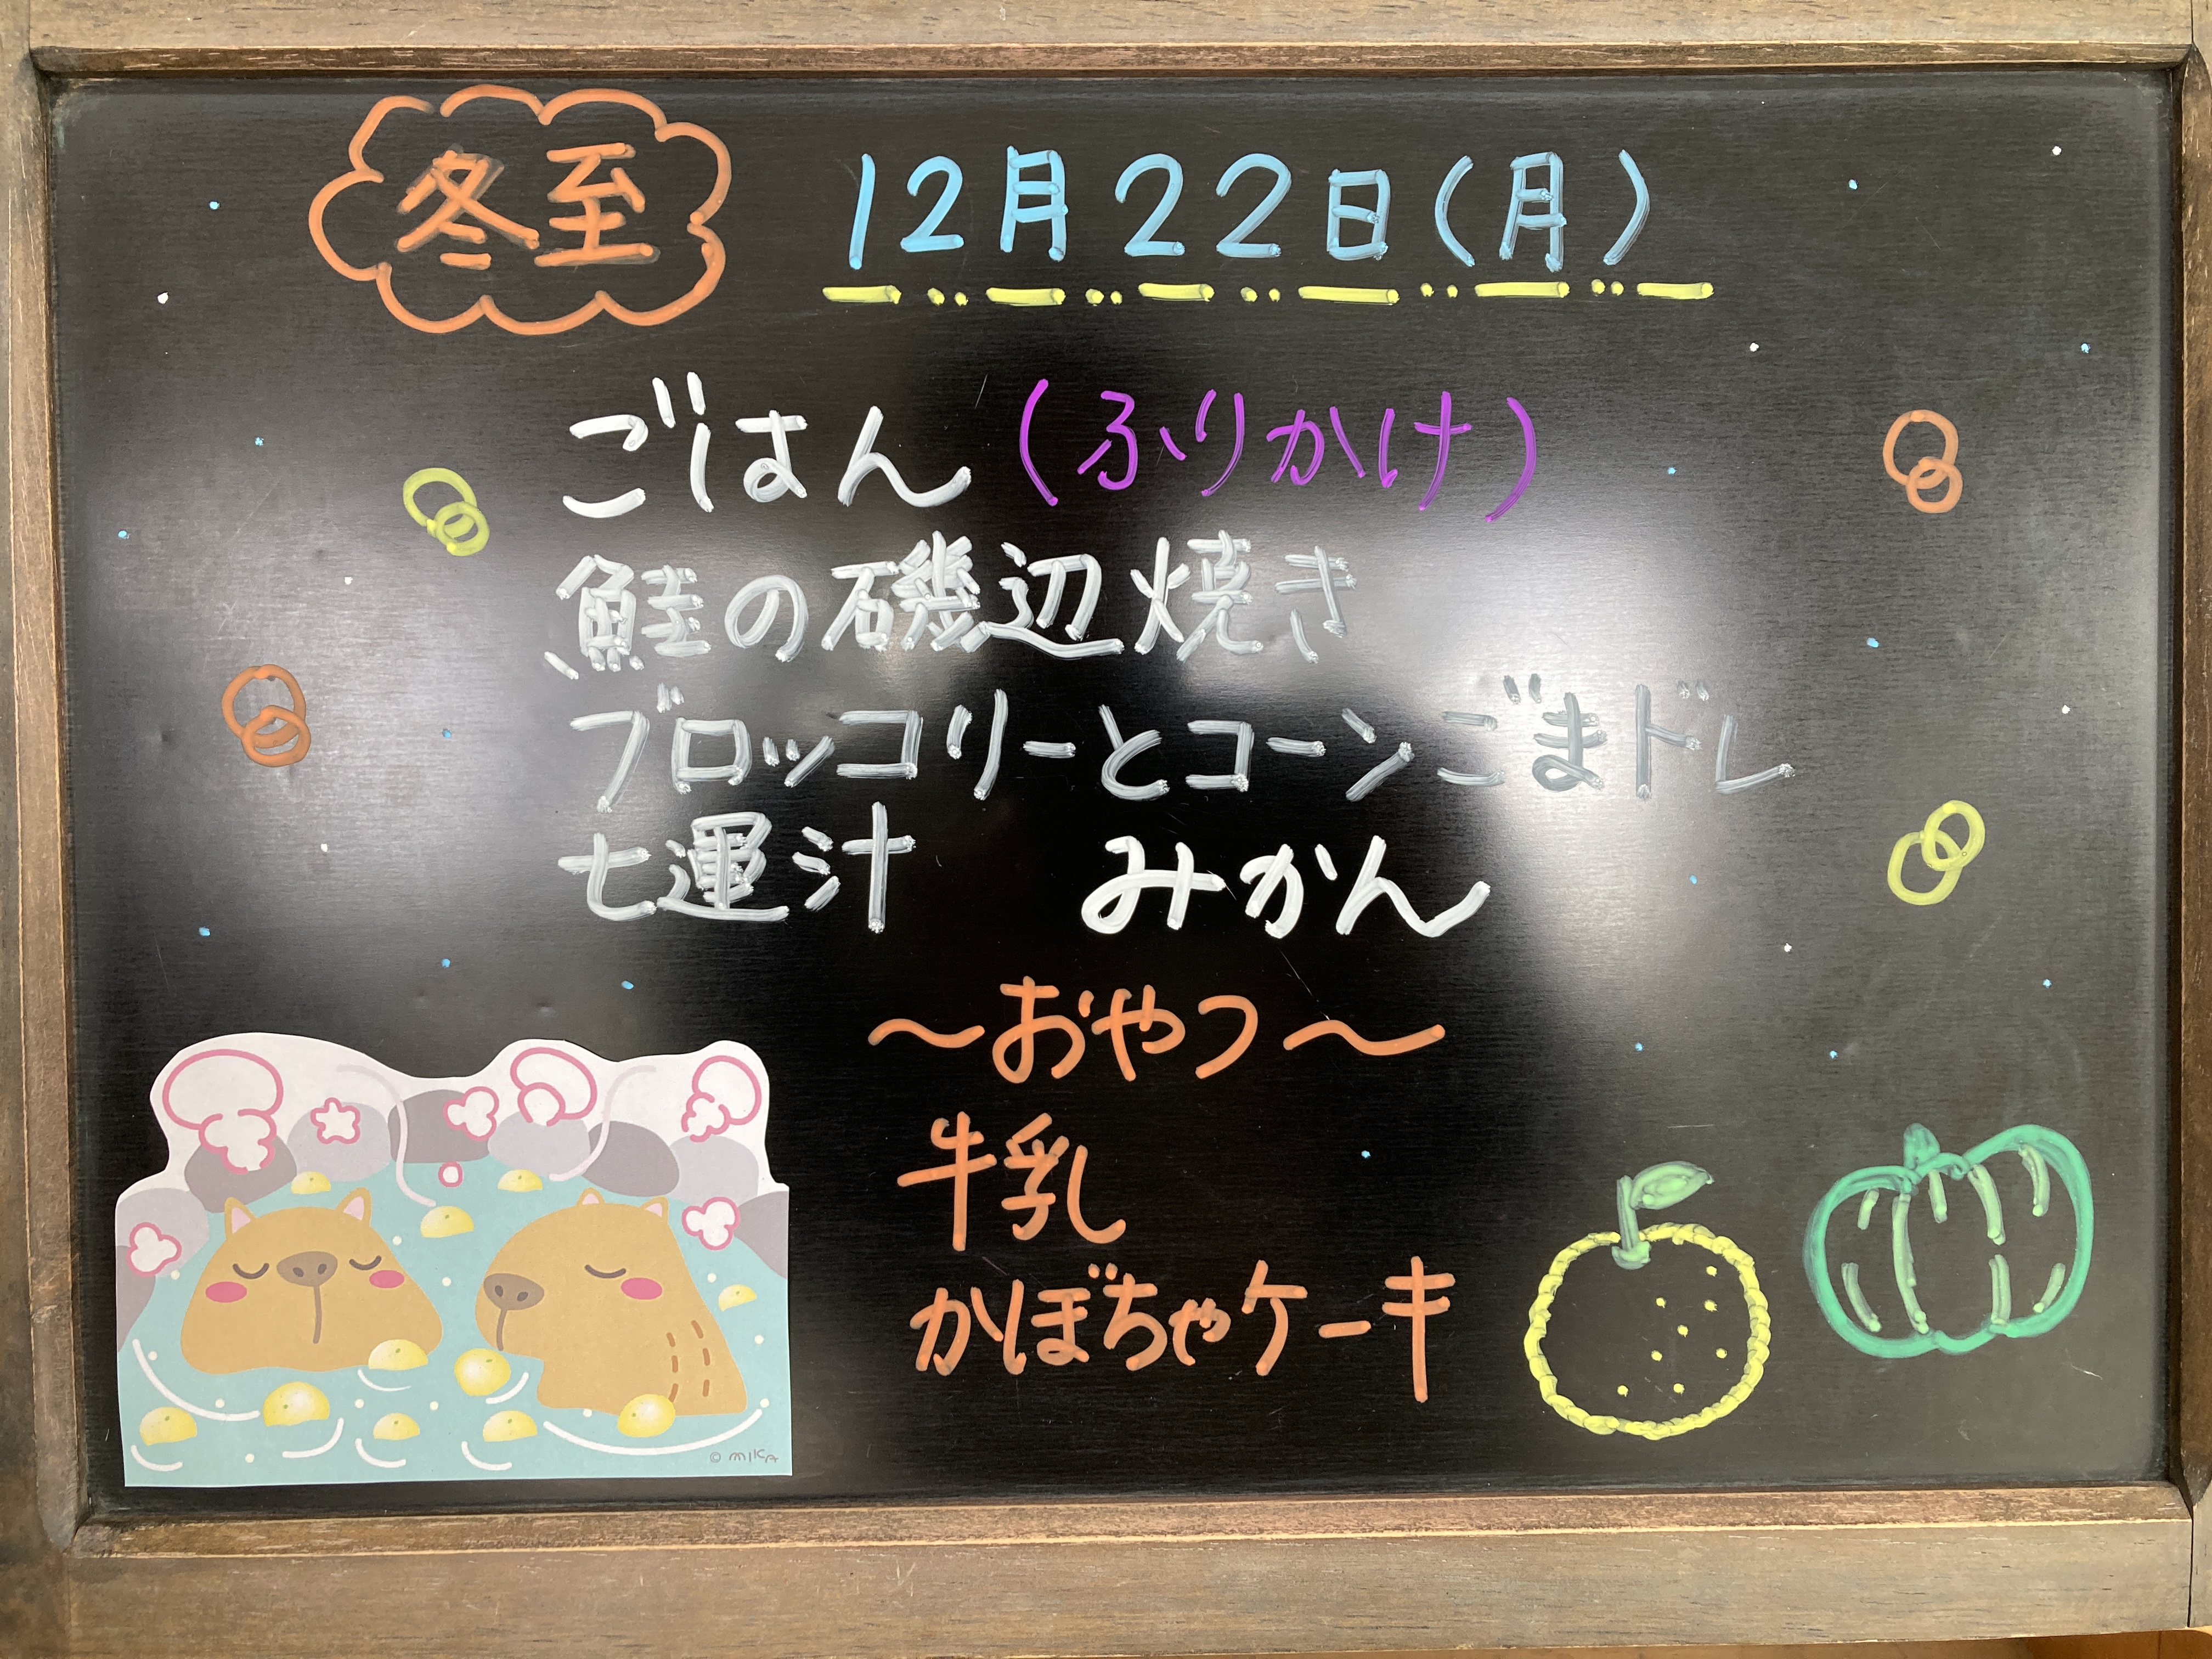 冬至 12月22日(月)
ごはん(ふりかけ)
鮭の磯辺焼き
ブロッコリーとコーンごまドレ
七運汁 みかん
～おやつ～
牛乳
かぼちゃケーキ
© MIKA